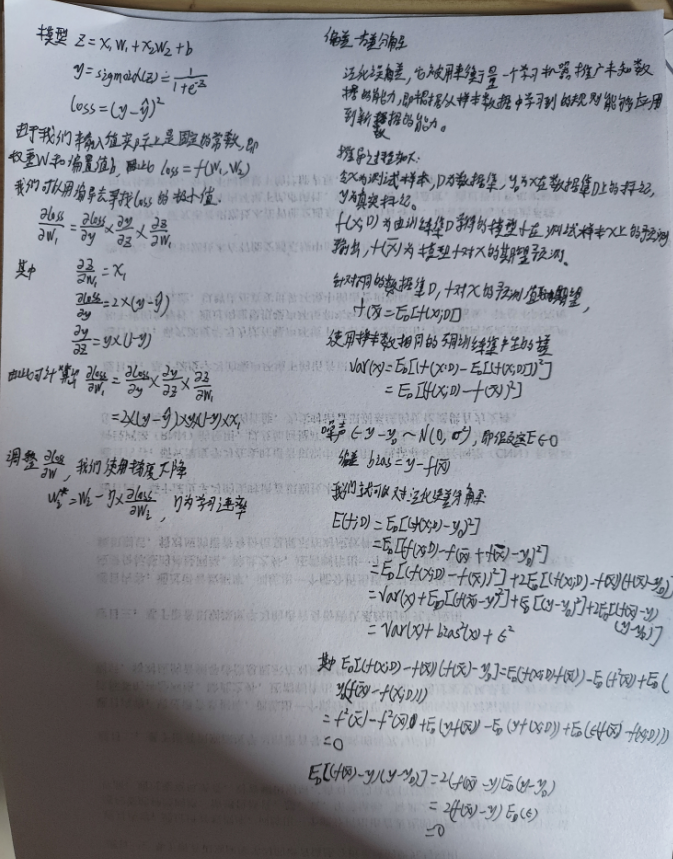 模型 z = x₁w₁ + x₂w₂ + b
y = sigmoid(z) = 1/(1+e^-z)
loss = (y-ŷ)²
由于我们的输入值实际上是固定的常数,即
权重W和偏置值b, 因此 loss = f(w₁,w₂)
我们可以用偏导去寻找loss的极小值.
∂loss/∂w₁ = ∂loss/∂y × ∂y/∂z × ∂z/∂w₁
其中 ∂z/∂w₁ = x₁
∂loss/∂y = 2×(y-ŷ)
∂y/∂z = y×(1-y)
由此可计算出 ∂loss/∂w₁ = ∂loss/∂y × ∂y/∂z × ∂z/∂w₁
= 2×(y-ŷ)×y×(1-y)×x₁
调整 ∂loss/∂w, 我们使用梯度下降
w₂* = w₂ - η×∂loss/∂w₂, η为学习速率
偏差-方差分解
泛化误差, 它被用来衡量一个学习机器推广未知数
据的能力,即根据从样本数据中学习到的规则能够应用
到新数据的能力。
推导过程如下:
令x为测试样本,D为数据集,y₀为x在数据集D上的标记,
y为真实标记。
f(x;D)为由训练集D学得的模型f在测试样本x上的预测
输出, f(x̄)为模型f对x的期望预测。
针对不同的数据集D, f对x的预测值的期望,
f(x̄) = E_D[f(x;D)]
使用样本数相同的不同训练集产生的方差
Var(x) = E_D[(f(x;D) - E_D[f(x;D)])²]
= E_D[(f(x;D) - f(x̄))²]
噪声 ε = y-y₀ ~ N(0,σ²), 即假定 E(ε)=0
偏差 bias = y-f(x̄)
我们就可以对泛化误差分解:
E(f;D) = E_D[(f(x;D)-y₀)²]
= E_D[(f(x;D)-f(x̄)+f(x̄)-y₀)²]
= E_D[(f(x;D)-f(x̄))²] + 2E_D[(f(x;D)-f(x̄))(f(x̄)-y₀)]
= Var(x)+E_D[(f(x̄)-y)²]+E_D[(y-y₀)²]+2E_D[(f(x̄)-y)
(y-y₀)]
= Var(x)+bias²(x)+ε²
其中 E_D[(f(x;D)-f(x̄))(f(x̄)-y₀)]=E_D(f(x;D)f(x̄))-E_D(f²(x̄))+E_D(
y(f(x̄)-f(x;D)))
= f²(x̄)-f²(x̄)+E_D(yf(x̄))-E_D(yf(x;D))+E_D(ε(f(x̄)-f(x;D)))
=0
E_D[(f(x̄)-y)(y-y₀)] = 2(f(x̄)-y)E_D(y-y₀)
= 2(f(x̄)-y)E_D(ε)
=0